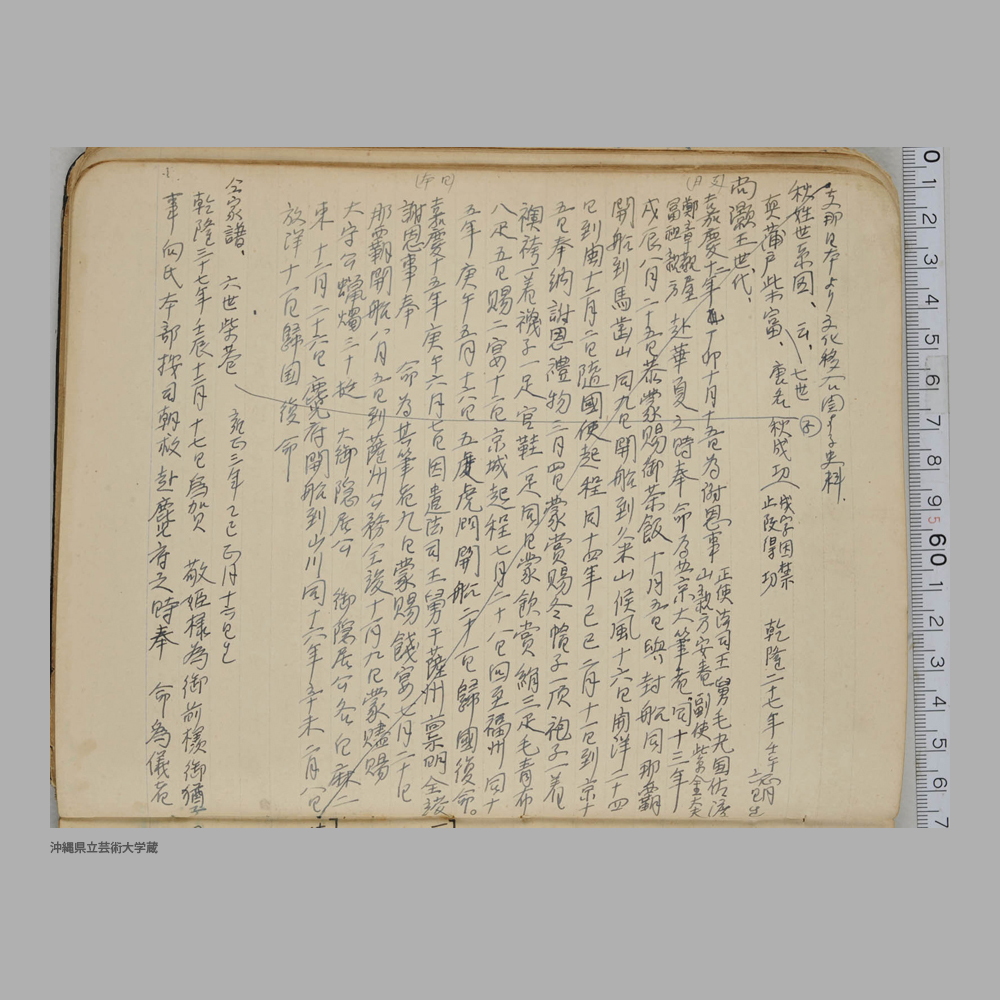 支那日本より文化移入ニ関する史料.
秋姓世系図、云、七世
真蒲戸柴富、唐名秋成功 成字因禁止改得功 乾隆二十七年壬午
尚灝王世代、
(支日)
嘉慶十二年丁卯十月十五日為謝恩事 正使法司王舅毛光国佐渡山親方安春 副使紫金大夫
鄭章観 冨祖親方 赴華夏之時奉 命為赴京大筆者同十三年
戊辰八月二十五日恭蒙賜御茶飯十月五日與封船同那覇
開船到馬歯山同九日開船到久米山候風十六日開洋二十四
日到閩十二月二日隨國使起程同十四年己巳二月十一日到京十
五日奉納謝恩禮物三月四日蒙賞賜冬帽子一頂袍子一着
襖袴一着襪子一足官鞋一足同日蒙飲賞絹三疋毛青布
八疋五日賜二宴十二日京城起程七月二十八日回至福州同十
五年庚午五月十六日五虎門開船二十一日歸國復命。
(日本)
嘉慶十五年庚午六月七日因遣法司王舅于薩州禀明全竣
謝恩事奉 命為其筆者九日蒙賜餞宴七月二十日
那覇開船八月五日到薩州公務全竣十一月九日蒙賜
大守公蠟燭三十挺 大御隠居公 御隠居公各白麻二
束十二月二十六日麑府開船到山川同十六年辛未二月八日
放洋十一日歸国復命
仝家譜、六世柴蕃、雍正三年乙巳正月十六日生
乾隆三十七年壬辰十二月十七日為賀 敬姫様為御前様御猶子
事向氏本部按司朝救赴麑府之時奉 命為儀者
沖縄県立芸術大学蔵
0 1 2 3 4 5 6 7 8 9 60 1 2 3 4 5 6 7